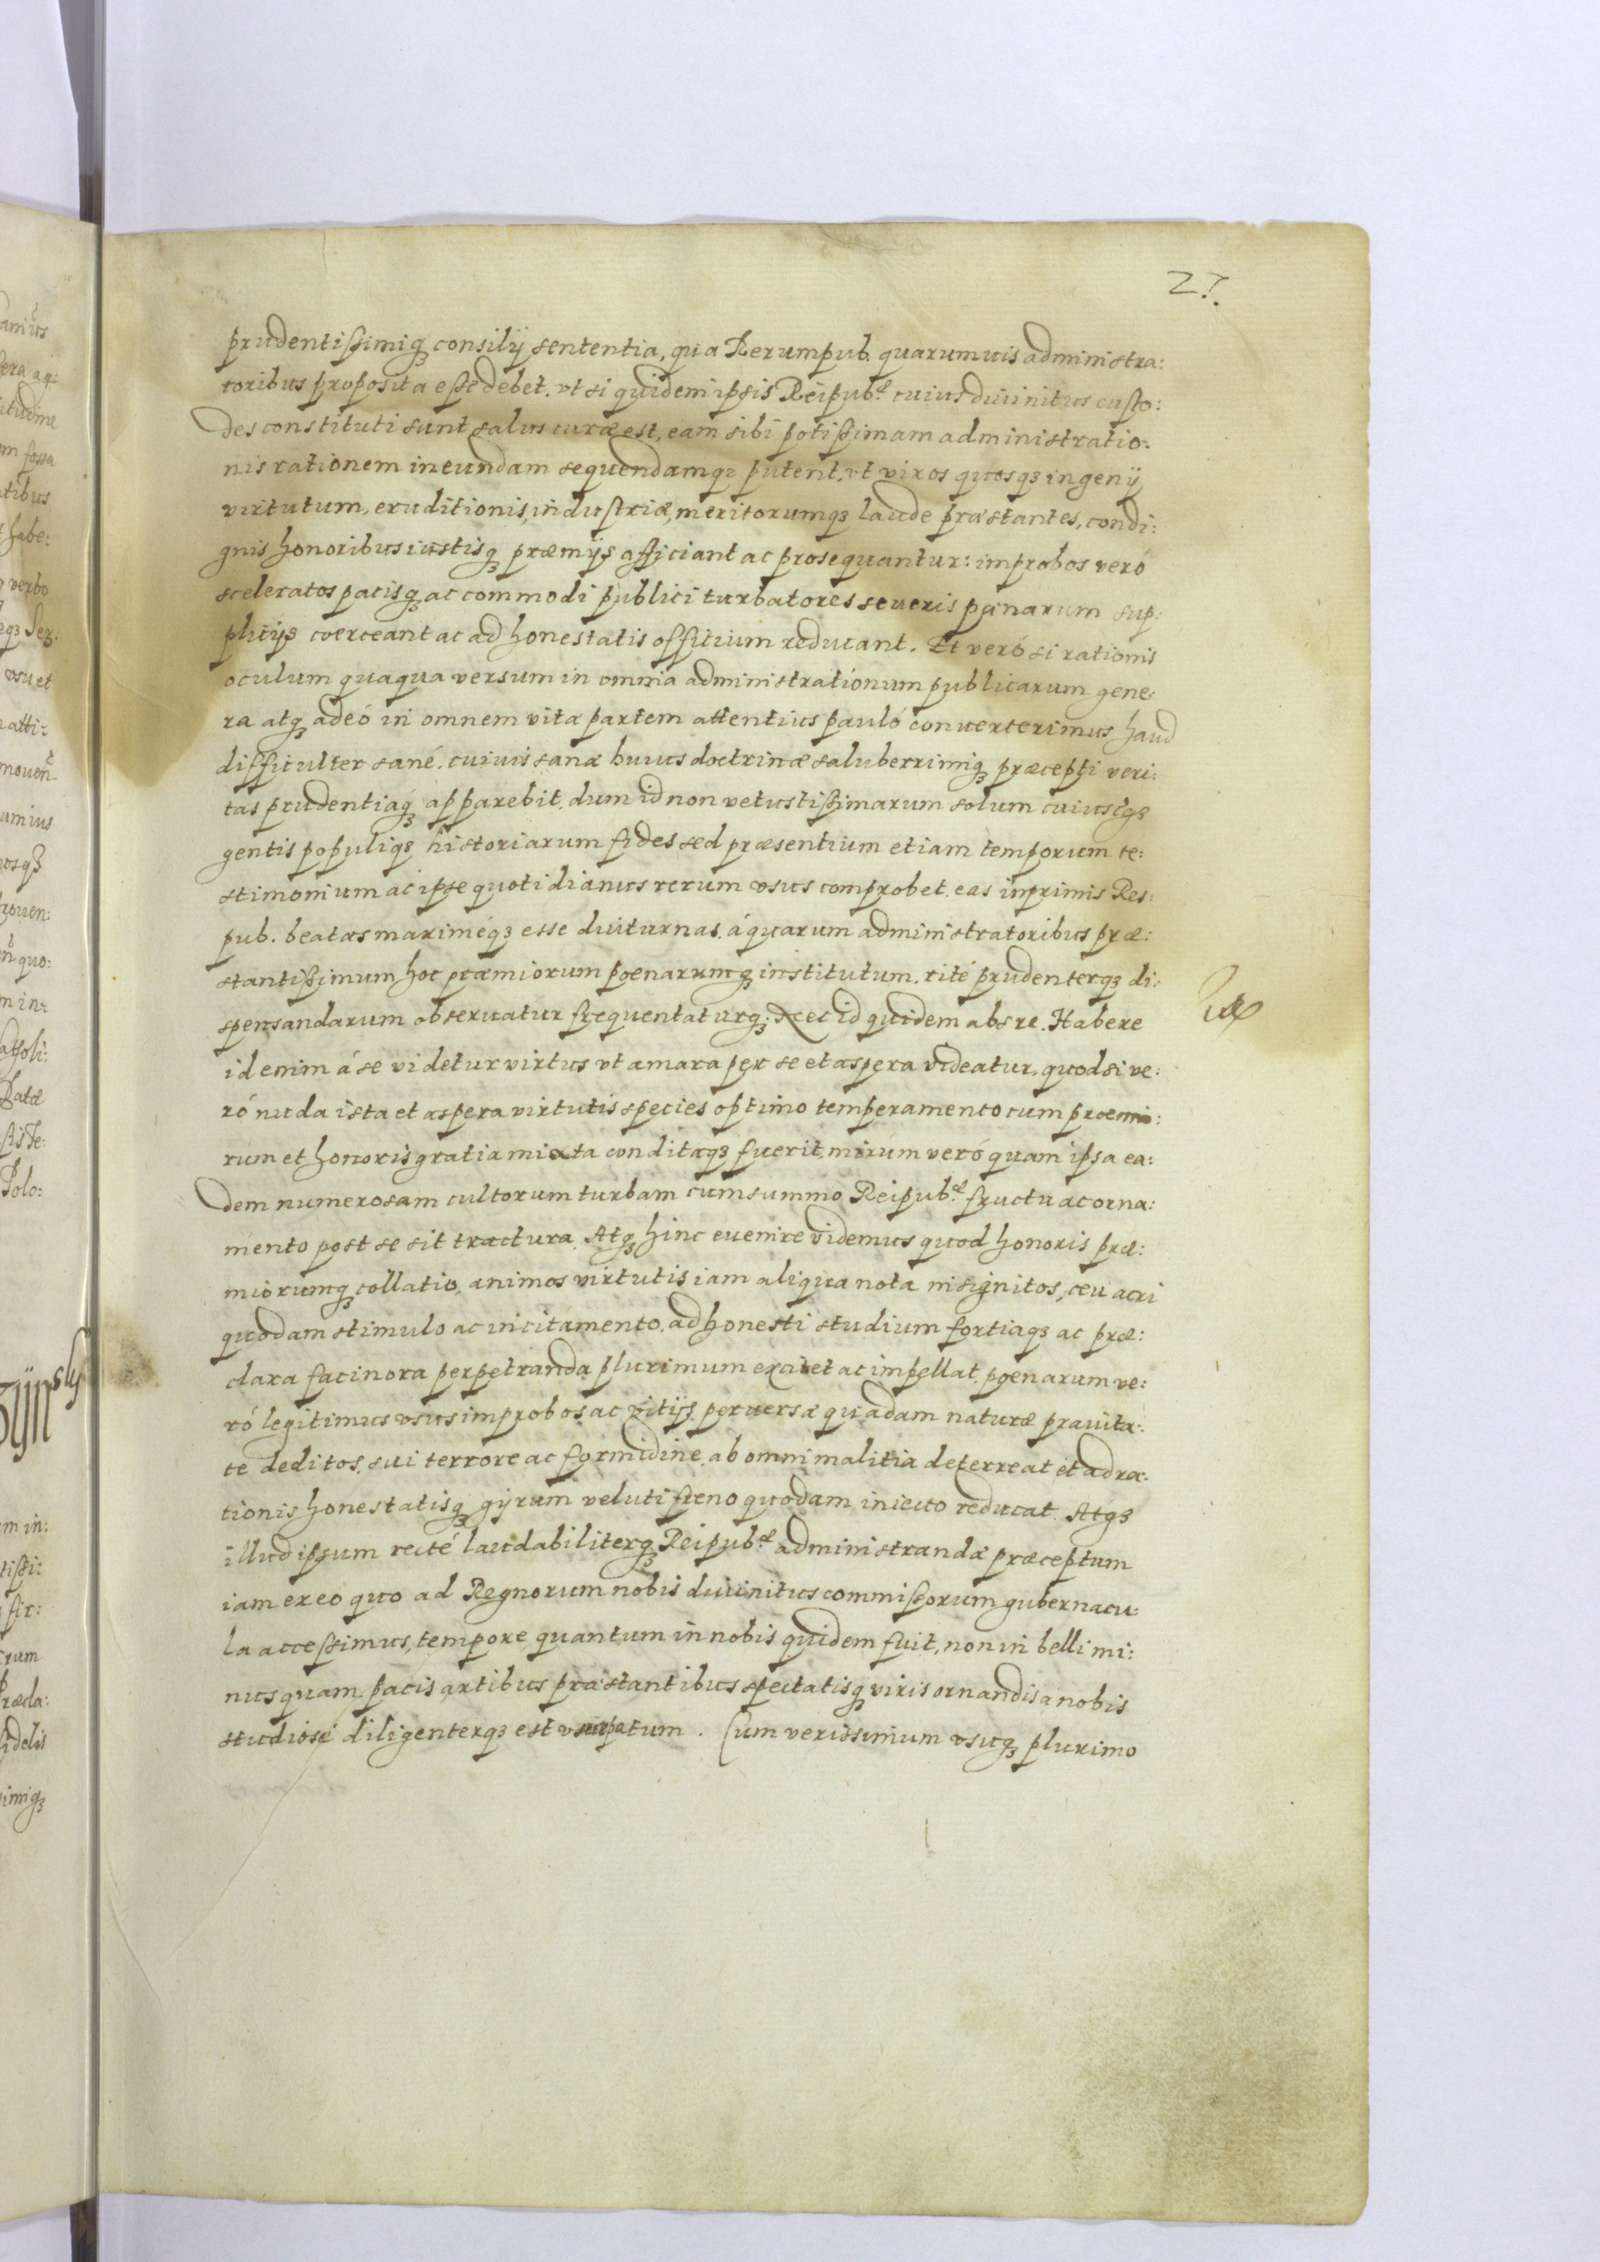 27.
prudentißimiq₃ consilij sententia, qua Rerumpub. quarumuis administra:
toribus proposita esse debet. vt si quidem ipsis Reipub:ᵃᵉ cuius diuinitus custo:
des constituti sunt salus curæ est, eam sibi potißimam administratio:
nis rationem ineundam sequendamq₃ putent, vt viros quosq₃ ingenij
virtutum, eruditionis, industriæ, meritorumq₃ laude præstantes, condi:
gnis honoribus iustisq₃ præmijs afficiant ac prosequantur: improbos veró
sceleratos pacisq₃ ac commodi publici turbatores seueris pœnarum sup:
plicijs coerceant ac ad honestatis officium reducant. Et veró si rationis
oculum quaqua versum in omnia administrationum publicarum gene:
ra atq₃ adeó in omnem vitæ partem attentius pauló conuerterimus haud
difficulter sané, cuiuis sanæ huius doctrinæ saluberrimiq₃ præcepti veri:
tas prudentiaq₃ apparebit, dum id non vetustißimarum solum cuiusq₃
gentis populiq₃ historiarum fides sed præsentium etiam temporum te:
stimonium ac ipse quotidianus rerum vsus comprobet, eas inprimis Res:
pub. beatas maximéq₃ esse diuturnas, á quarum administratoribus præ:
stantißimum hoc præmiorum pœnarumq₃ institutum, rité prudenterq₃ di:
spensandarum obseruatur frequentaturq₃: Nec id quidem abs re. Habere
id enim á se videtur virtus vt amara per se et aspera videatur, quod si ve:
ró nuda ista et aspera virtutis species optimo temperamento cum præmio:
rum et honoris gratia mixta conditaq₃ fuerit, mirum veró quam ipsa ea:
dem numerosam cultorum turbam cum summo Reipub:ᵃᵉ fructu ac orna:
mento post se sit tractura. Atq₃ hinc euenire videmus quod honoris præ:
miorumq₃ collatio, animos virtutis iam aliqua nota insignitos, ceu acri
quodam stimulo ac incitamento, ad honesti studium fortiaq₃ ac præ:
clara facinora perpetranda plurimum excitet ac impellat, pœnarum ve:
ró legitimus vsus improbos ac vitijs peruersæ quadam naturæ prauita:
te deditos, sui terrore ac formidine, ab omni malitia deterreat et ad ra:
tionis honestatisq₃ gyrum veluti freno quodam iniecto reducat. Atq₃
illud ipsum recté laudabiliterq₃ Reipub:ᵃᵉ administrandæ præceptum
iam ex eo quo ad Regnorum nobis diuinitus commißorum gubernacu:
la acceßimus, tempore, quantum in nobis quidem fuit, non in belli mi:
nus quam pacis artibus præstantibus spectatisq₃ viris ornandis a nobis
studiosé diligenterq₃ est vsurpatum. Cum verissimum vsuq₃ plurimo